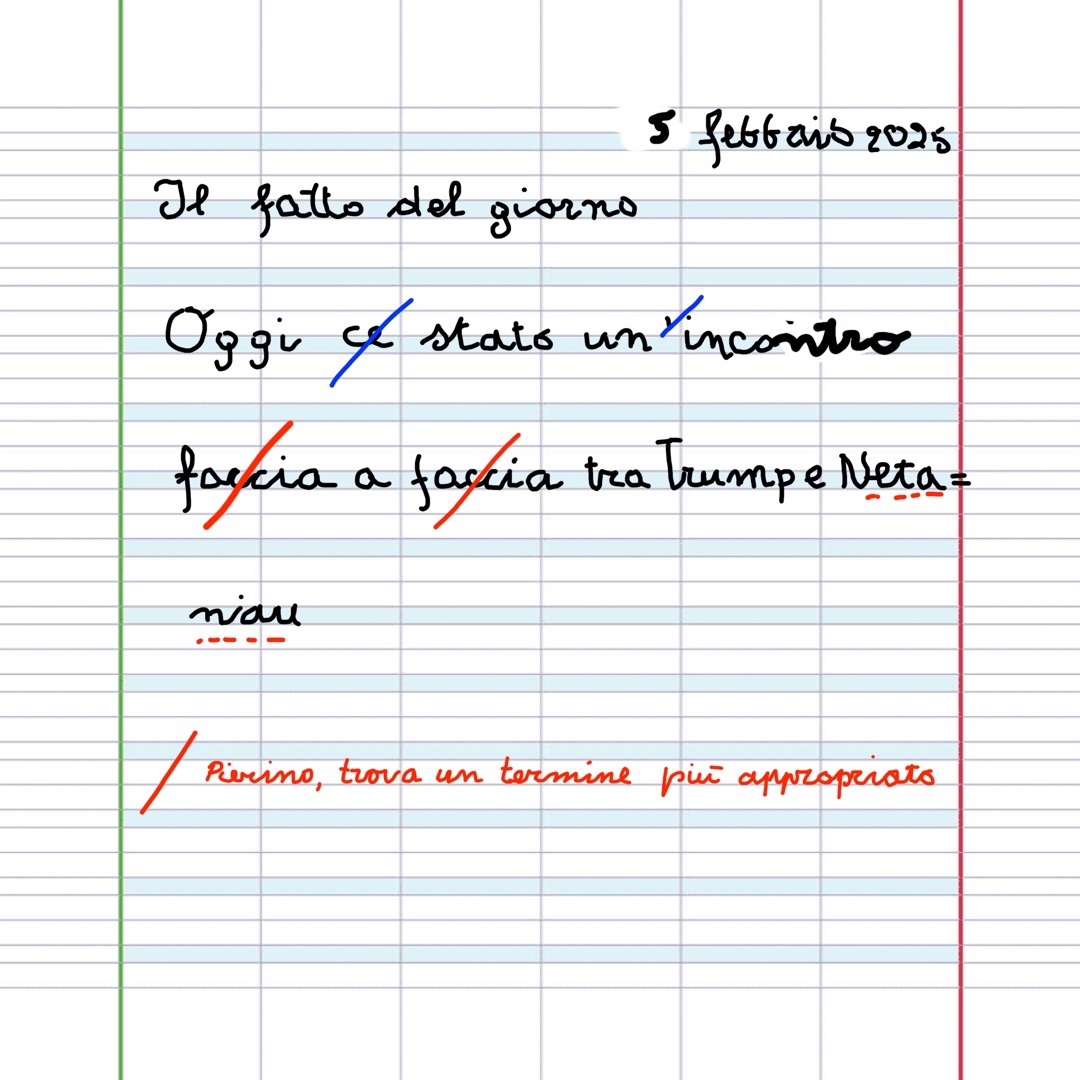 5 febbraio 2025
Il fatto del giorno
Oggi ce stato un'incontro
faccia a faccia tra Trump e Neta=
niau
Pierino, trova un termine più appropriato